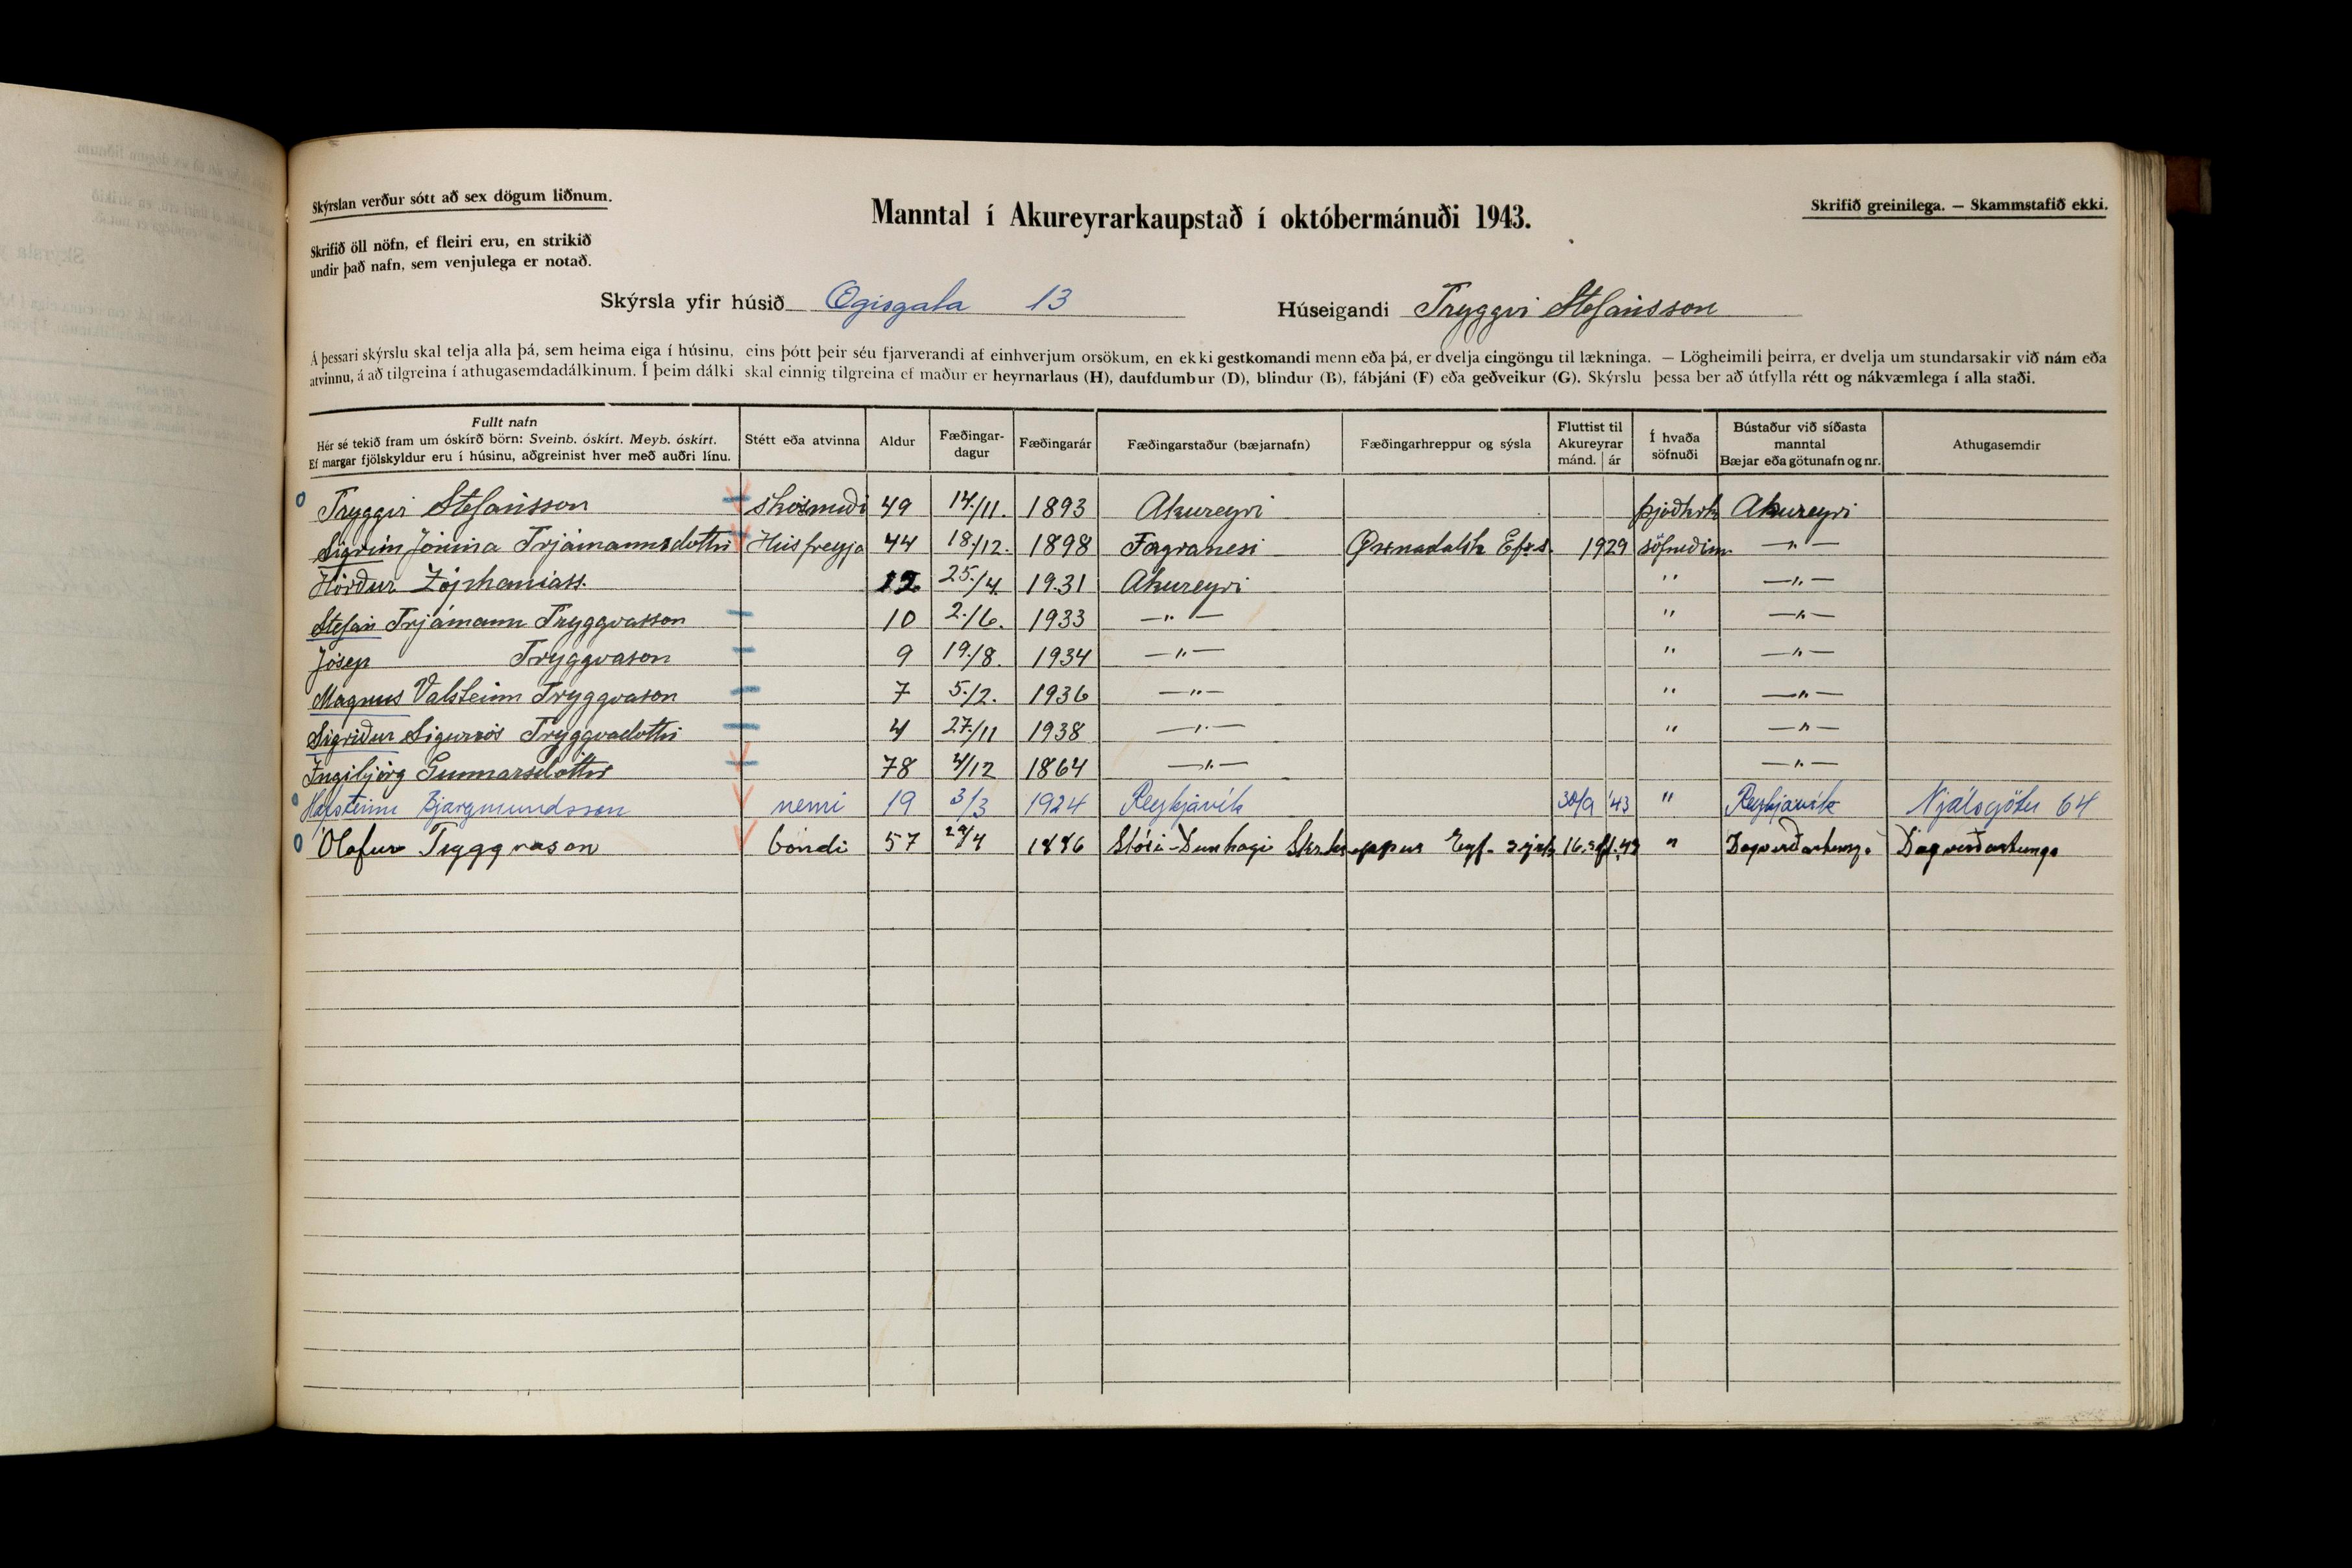 Skýrslan verður sótt að sex dögum liðnum.
Manntal í Akureyrarkaupstað í októbermánuði 1943.
Skrifið greinilega. — Skammstafið ekki.
Skrifið öll nöfn, ef fleiri eru, en strikið
undir það nafn, sem venjulega er notað.
Skýrsla yfir húsið Ægisgata 13
Húseigandi Tryggvi Stefánsson
Á þessari skýrslu skal telja alla þá, sem heima eiga í húsinu, eins þótt þeir séu fjarverandi af einhverjum orsökum, en ekki gestkomandi menn eða þá, er dvelja eingöngu til lækninga. — Lögheimili þeirra, er dvelja um stundarsakir við nám eða
atvinnu, á að tilgreina í athugasemdadálkinum. Í þeim dálki skal einnig tilgreina ef maður er heyrnarlaus (H), daufdumbur (D), blindur (B), fábjáni (F) eða geðveikur (G). Skýrslu þessa ber að útfylla rétt og nákvæmlega í alla staði.
Fullt nafn
Hér sé tekið fram um óskírð börn: Sveinb. óskírt. Meyb. óskírt.
Ef margar fjölskyldur eru í húsinu, aðgreinist hver með auðri línu.
Stétt eða atvinna
Aldur
Fæðingar-
dagur
Fæðingarár
Fæðingarstaður (bæjarnafn)
Fæðingarhreppur og sýsla
Fluttist til
Akureyrar
mánd. ár
Í hvaða
söfnuði
Bústaður við síðasta
manntal
Bæjar eða götunafn og nr.
Athugasemdir
Tryggvi Stefánsson skósmiði 49 14./11. 1893 Akureyri þjóðkrk Akureyri
Sigrún Jónína Trjámannsdóttir Húsfreyja 44 18./12. 1898 Fagranesi Öxnadalsh Efs. 1929 söfnuðinn —"—
Hörður Zóphaníass. 12 25./4. 1931 Akureyri " —"—
Stefán Trjámann Tryggvasson 10 2./6. 1933 —"— " —"—
Jósep Tryggvason 9 19./8. 1934 —"— " —"—
Magnús Valsteinn Tryggvason 7 5./2. 1936 —"— " —"—
Sigríður Sigurrós Tryggvadóttir 4 27./11 1938 —"— " —"—
Ingibjörg Gunnarsdóttir 78 4/12 1864 —"— —"—
Hafsteinn Bjargmundsson nemi 19 3/3 1924 Reykjavík 30/9 '43 " Reykjavík Njálsgötu 64
Ólafur Tryggvason bóndi 57 29/4 1886 Stóri-Dunhagi Skr.hreppur Eyf. sýsla " Dagverðartunga Dagverðartunga